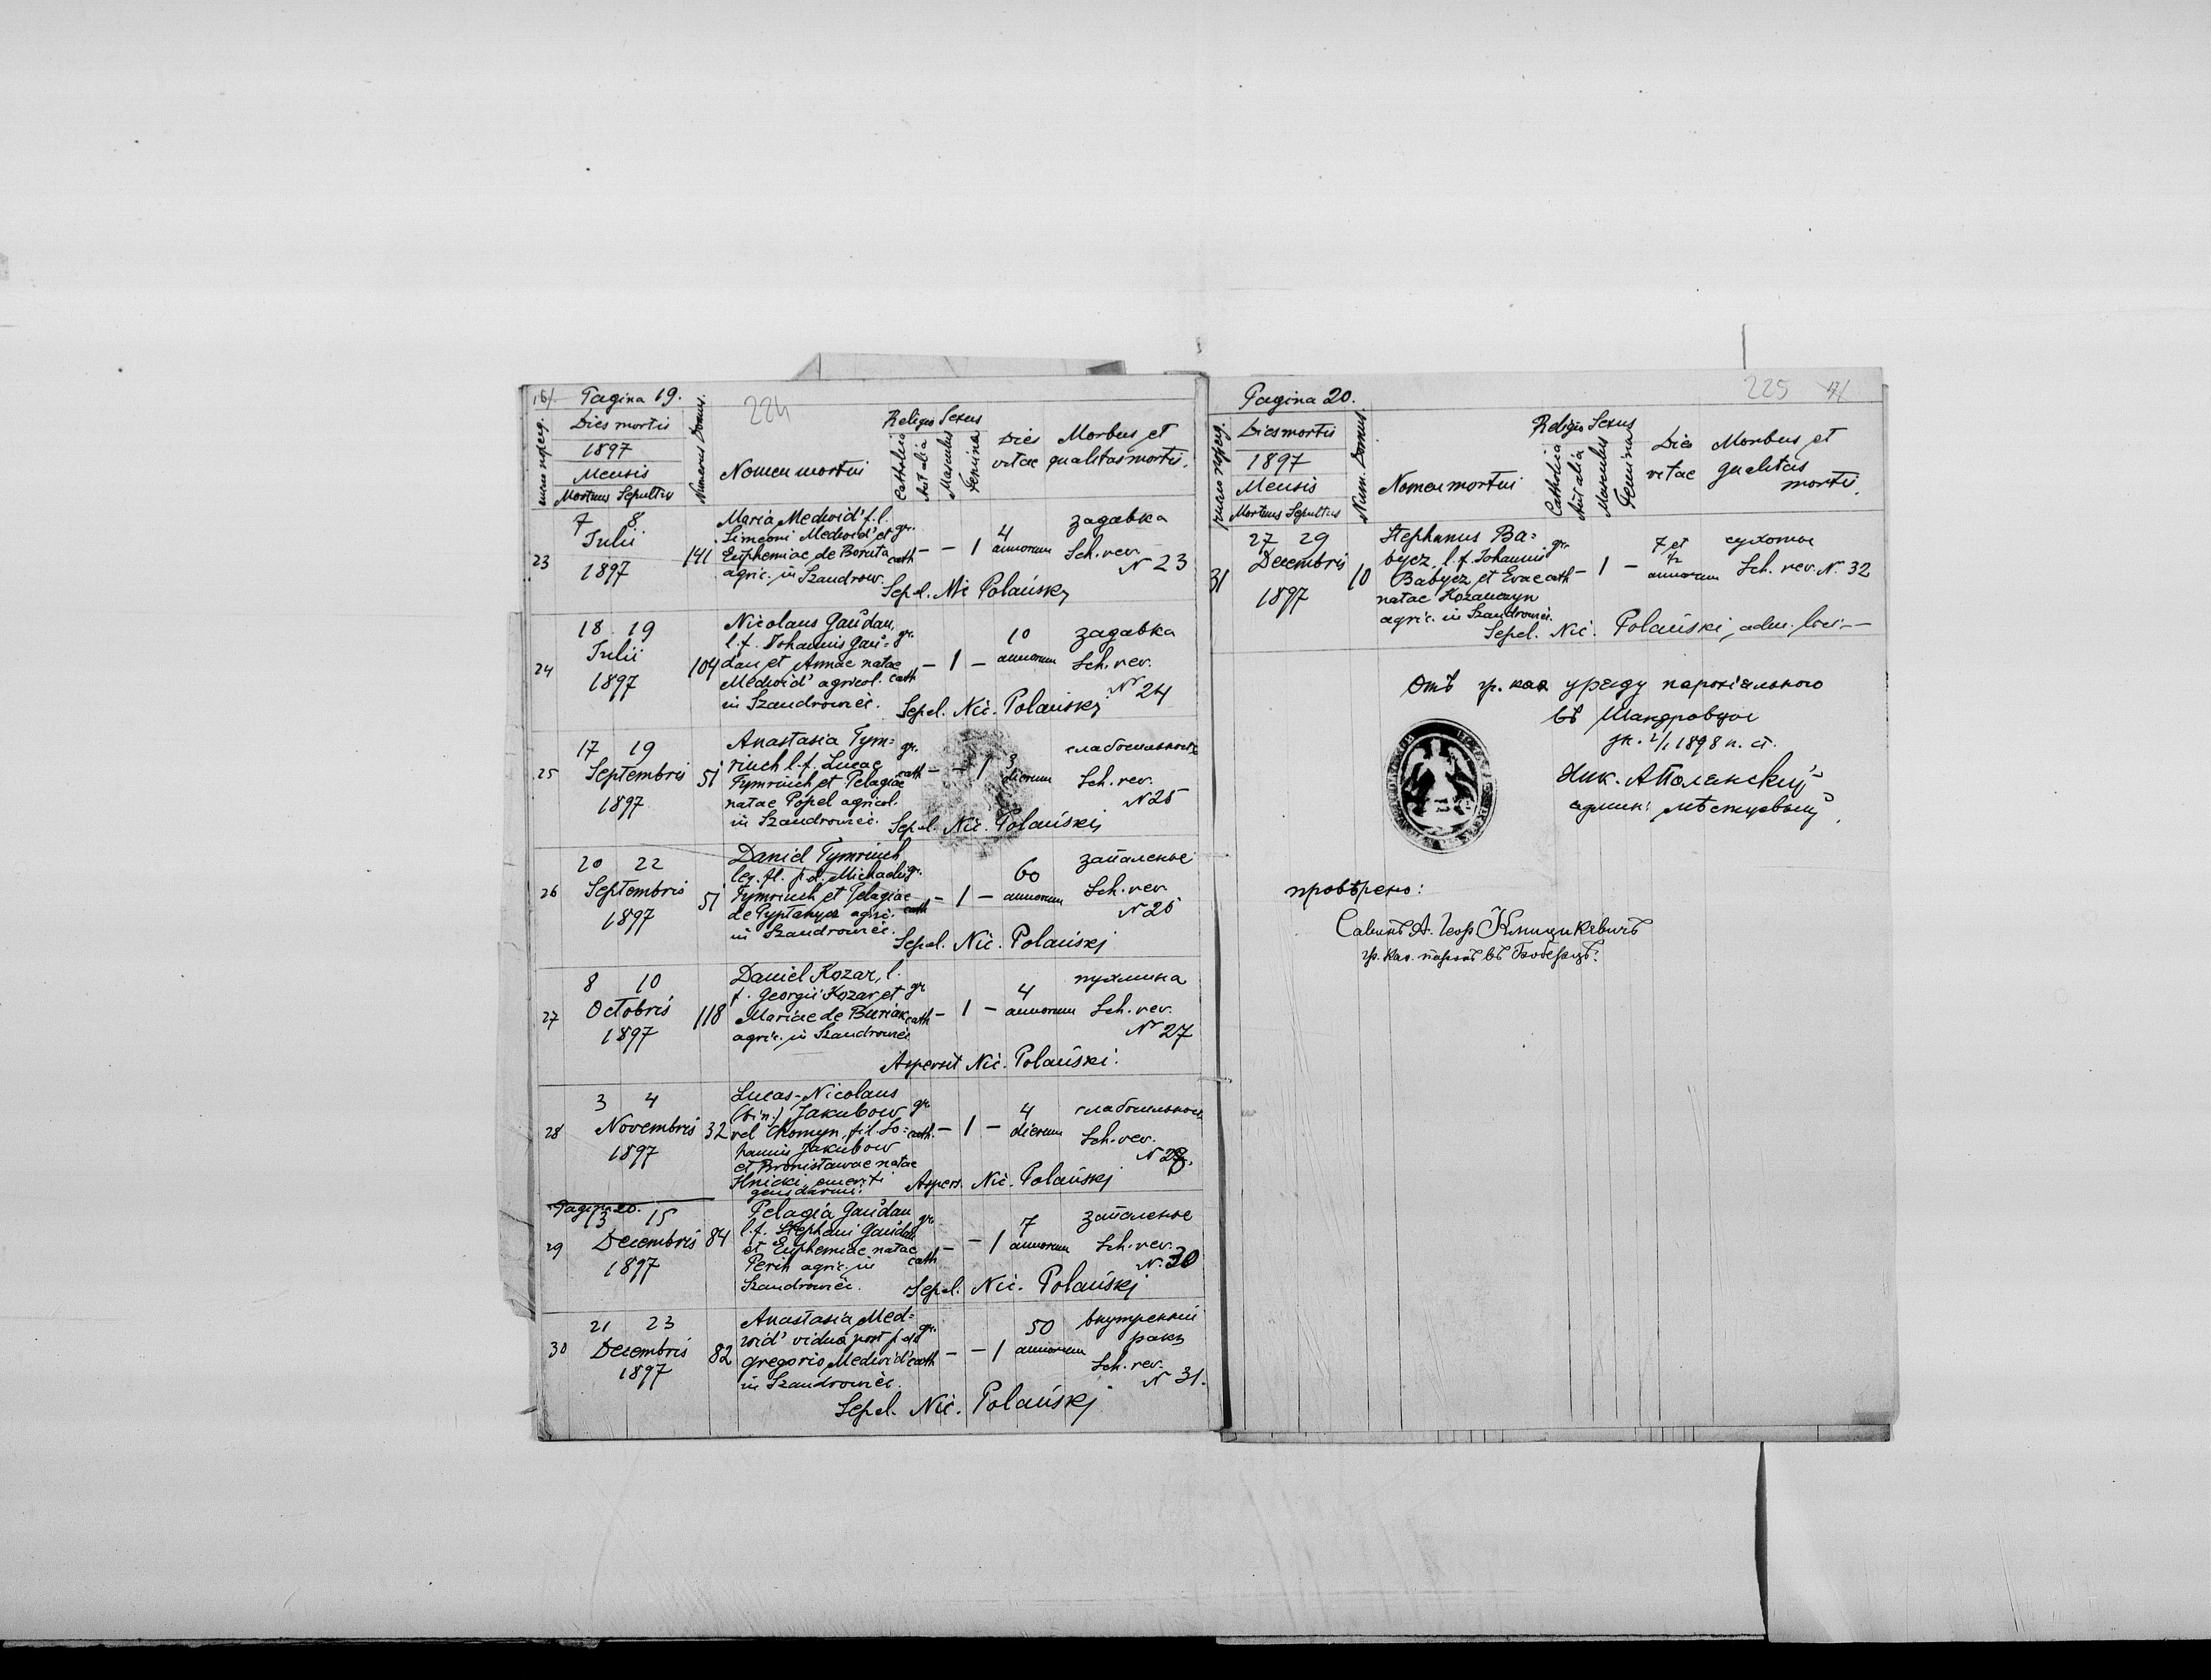 16/. Pagina 19.
224
Dies mortis
1897
Mensis
Mortuus Sepultus
Numerus Domus.
Nomen mortui
Religio Sexus
Catholica
Aut alia
Masculus
Femina
Dies vitae
Morbus et qualitas mortis.
23
7 8
Julii
1897
141
Maria Medwid' f. l.
Simeoni Medwid' et
Euphemiae de Boruta
agric. in Szandrow.
gr.
cath - - 1
4
annorum
загавка
Sch. rev.
N 23
Sepel. Nic Polański
24
18 19
Julii
1897
104
Nicolaus Gaŭdan,
l. f. Johannis Gaŭ=
dan et Annae natae
Medwid' agricol.
in Szandrowiec.
gr.
cath - 1 -
10
annorum
загавка
Sch. rev.
Nr 24
Sepel. Nic. Polański
25
17 19
Septembris
1897
51
Anastasia Tym=
riuch l. f. Lucae
Tymriuch et Pelagiae
natae Popel agricol.
in Szandrowiec.
gr.
cath - - 1
3
dierum
слабосильность
Sch. rev.
N 25
Sepel. Nic. Polański
26
20 22
Septembris
1897
51
Daniel Tymriuch
leg. fil. p.d. Michaelis
Tymriuch et Pelagiae
agric.
in Szandrowiec.
gr.
cath - 1 -
60
annorum
запаленье
Sch. rev.
N 26
Sepel. Nic. Polański
27
8 10
Octobris
1897
118
Daniel Kozar, l.
f. Georgii Kozar et
Mariae de Buriak
agric. in Szandrowiec
gr
cath - 1 -
4
annorum
пухлина
Sch. rev.
Nr 27
Aspersit Nic. Polański.
28
3 4
Novembris
1897
32
Lucas-Nicolaus
(bin.) Jakubow
vel Chomyn, fil. Jo=
hannis Jakubow
et Bronisławae natae
Hnicki, emeriti
gendarmi.
gr
cath. - 1 -
4
dierum
слабосильность
Sch. rev.
N 28.
Aspers. Nic. Polański
Pagina 20.
29
13 15
Decembris
1897
84
Pelagia Gaŭdan
l. f. Stephani Gaŭdan
et Euphemiae natae
Perih agric. in
Szandrowiec.
gr.
cath - - 1
7
annorum
запаленье
Sch. rev.
N. 30
Sepel. Nic. Polański
30
21 23
Decembris
1897
82
Anastasia Med=
wid' vidua post p. d.
Gregorio Medwid'
in Szandrowiec.
gr.
cath - - 1
50
annorum
внутренний
ракъ
Sch. rev.
N 31.
Sepel. Nic. Polański
Pagina 20.
225 17/
Dies mortis
1897
Mensis
Mortuus Sepultus
Num. Domus.
Nomen mortui
Religio Sexus
Catholica
Aut alia
Masculus
Femina
Dies vitae
Morbus et qualitas mortis.
31
27 29
Decembris
1897
10
Stephanus Ba=
bycz, l. f. Johannis
Babycz et Evae
natae Kozanczyn
agric. in Szandrowiec.
gr.
cath - 1 -
7 et
1/2
annorum
сухоты
Sch. rev. N. 32
Sepel. Nic. Polański, adm. loci.—
Отъ гр. каѳ уряду парохіального
въ Шандровци
дн. 2/1 1898 н. ст.
Ник. А Полянскій
админ: мѣстцевый.
провѣрено:
Савинъ А. Іеор Кмицикевичъ
гр. каѳ. парохъ въ Боберцѣ.